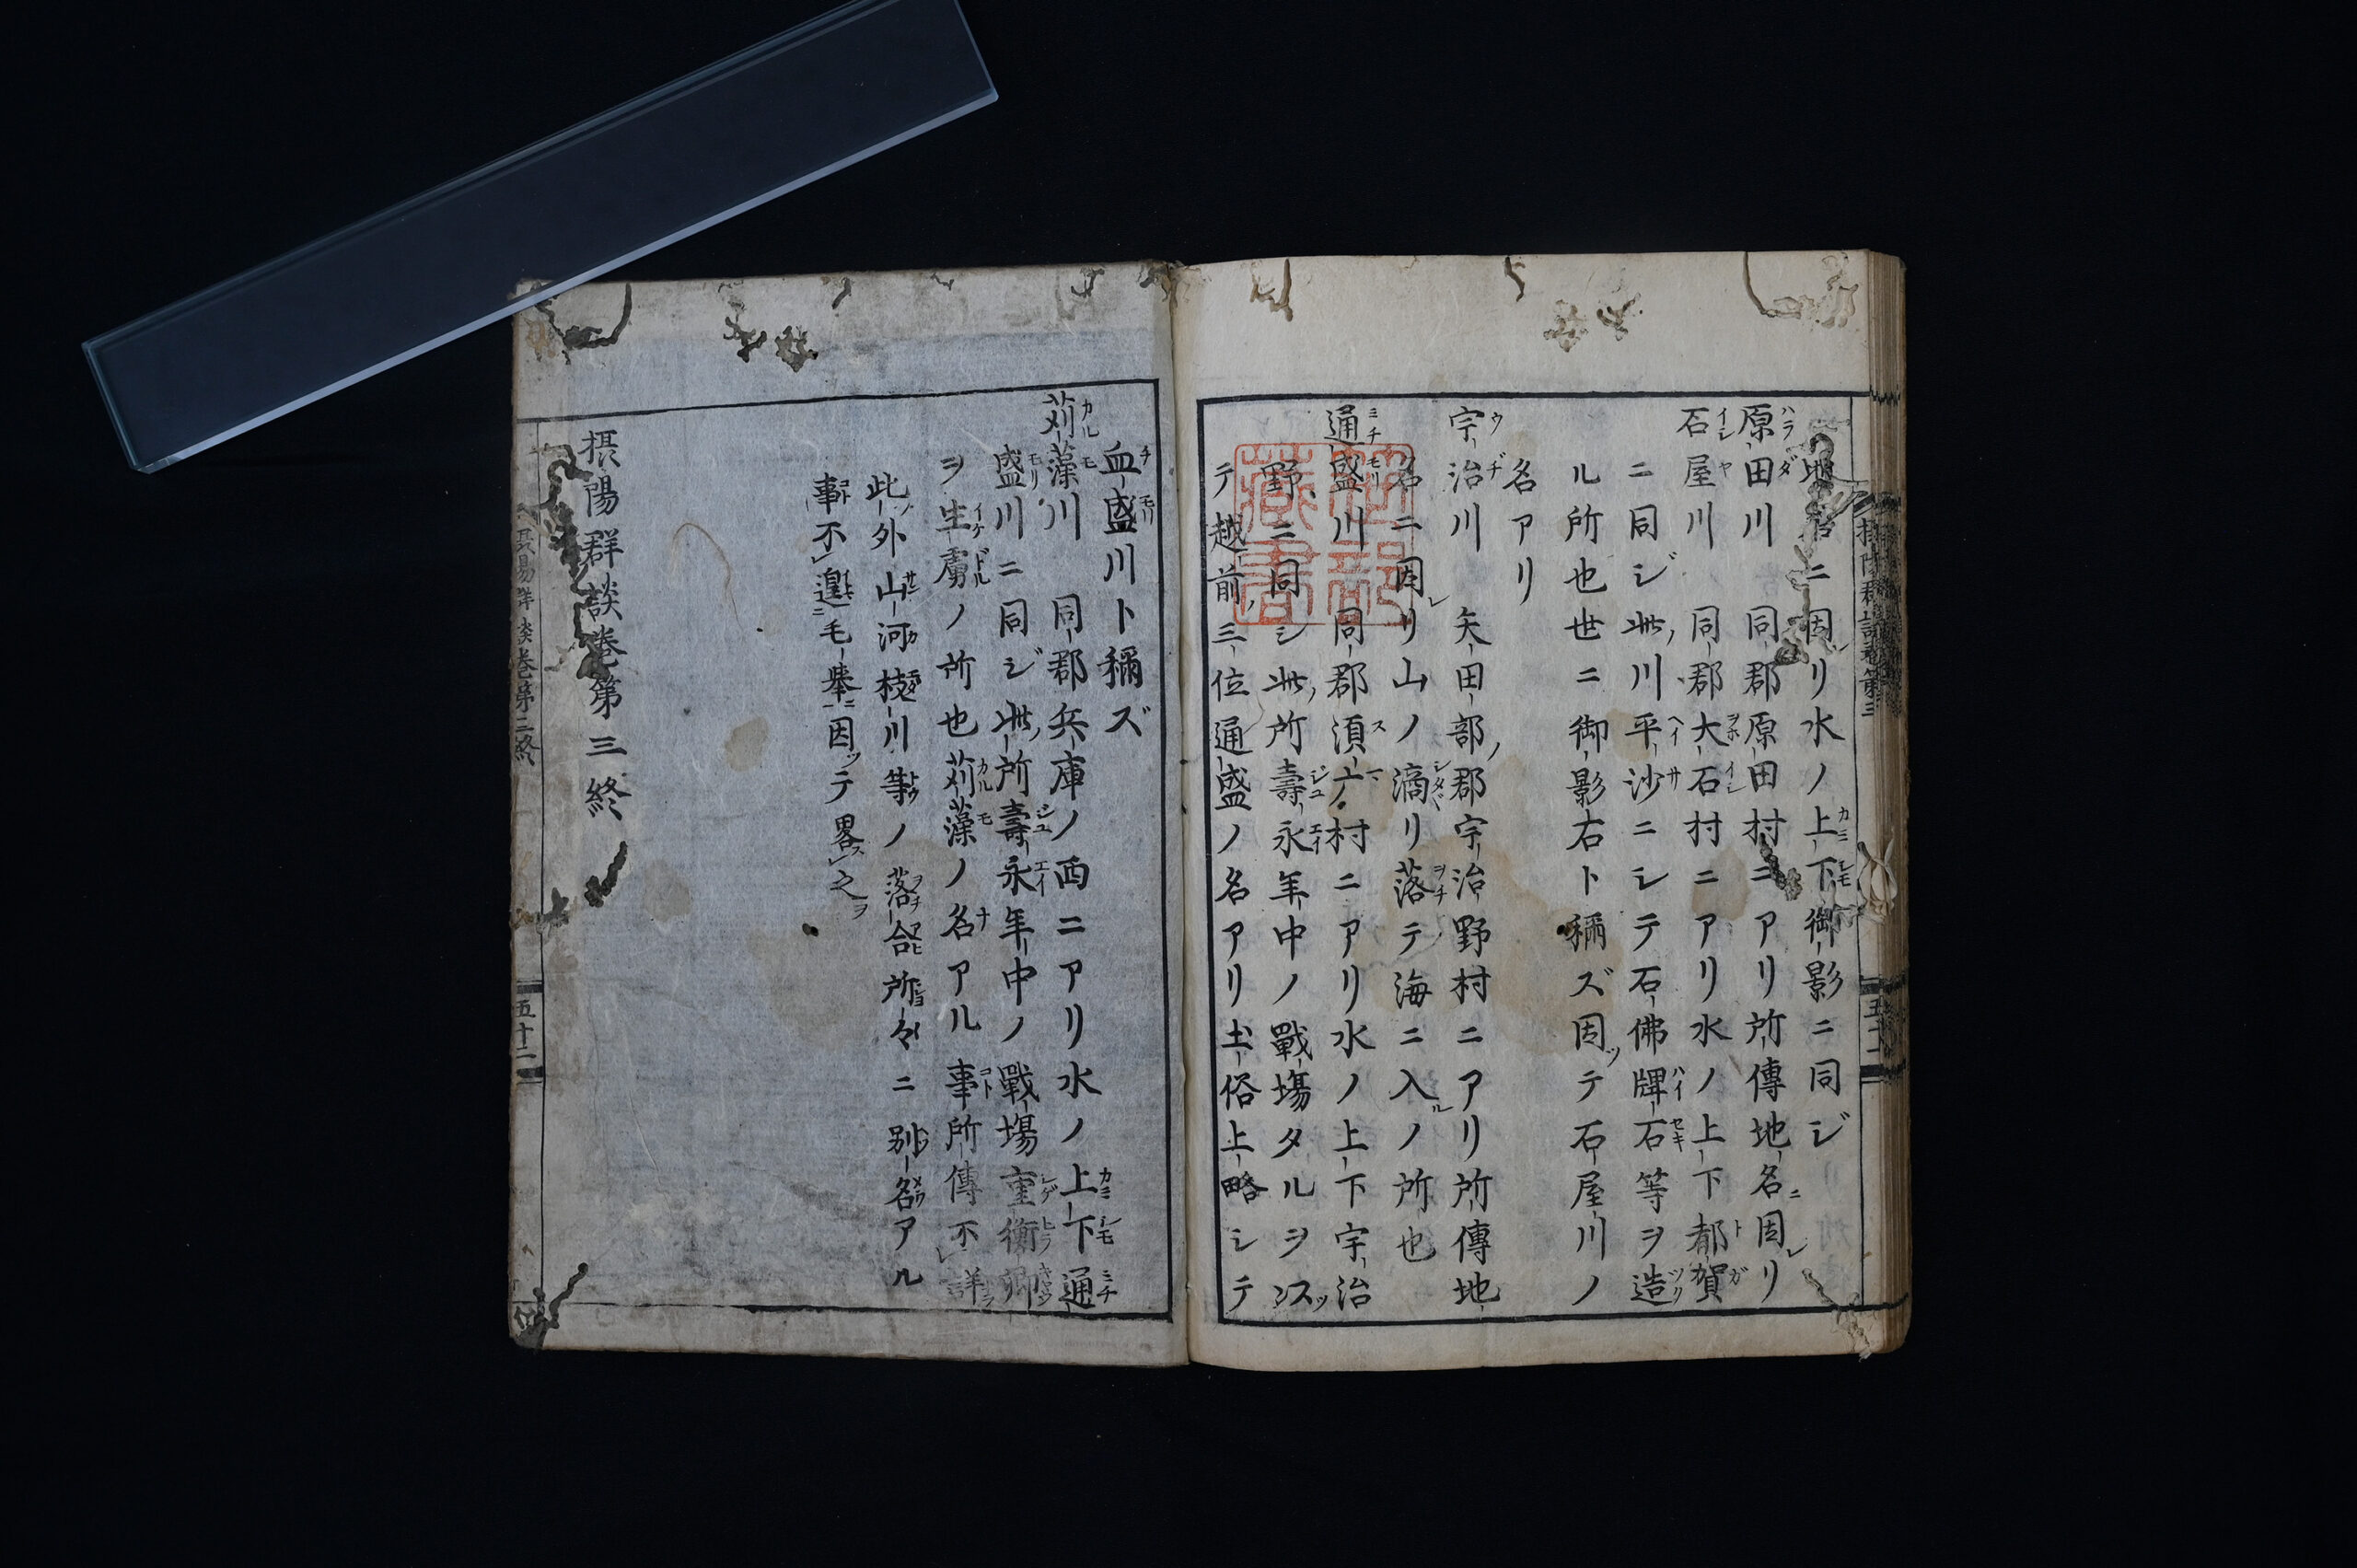 地名ニ因リ水ノ上下御影ニ同ジ
原田川 同郡原田村ニアリ所傳地名ニ因リ
石屋川 同郡大石村ニアリ水ノ上下都賀
ニ同ジ此川平沙ニシテ石佛牌石等ヲ造
ル所也世ニ御影石ト稱ズ因ッテ石屋川ノ
名アリ
宗治川 矢田部ノ郡宗治野村ニアリ所傳地
名ニ因リ山ノ滴リ落テ海ニ入ルノ所也
通盛川 同郡須广村ニアリ水ノ上下宇治
野ニ同シ此ノ所壽永年中ノ戰塲タルヲ以ッ
テ越前ノ三位通盛ノ名アリ土俗上略シテ
血盛川ト稱ズ
苅藻川 同郡兵庫ノ西ニアリ水ノ上下通
盛川ニ同ジ此ノ所壽永年中ノ戰塲重衡卿
ヲ生虜ノ所也苅藻ノ名アル事所傳不レ詳ラ
此ノ外山河枝川等ノ落合所々ニ別名アル
事不レ遑ニ毛擧一ニ因ッテ畧スレ之ヲ
摂陽群談巻第三終
五十二